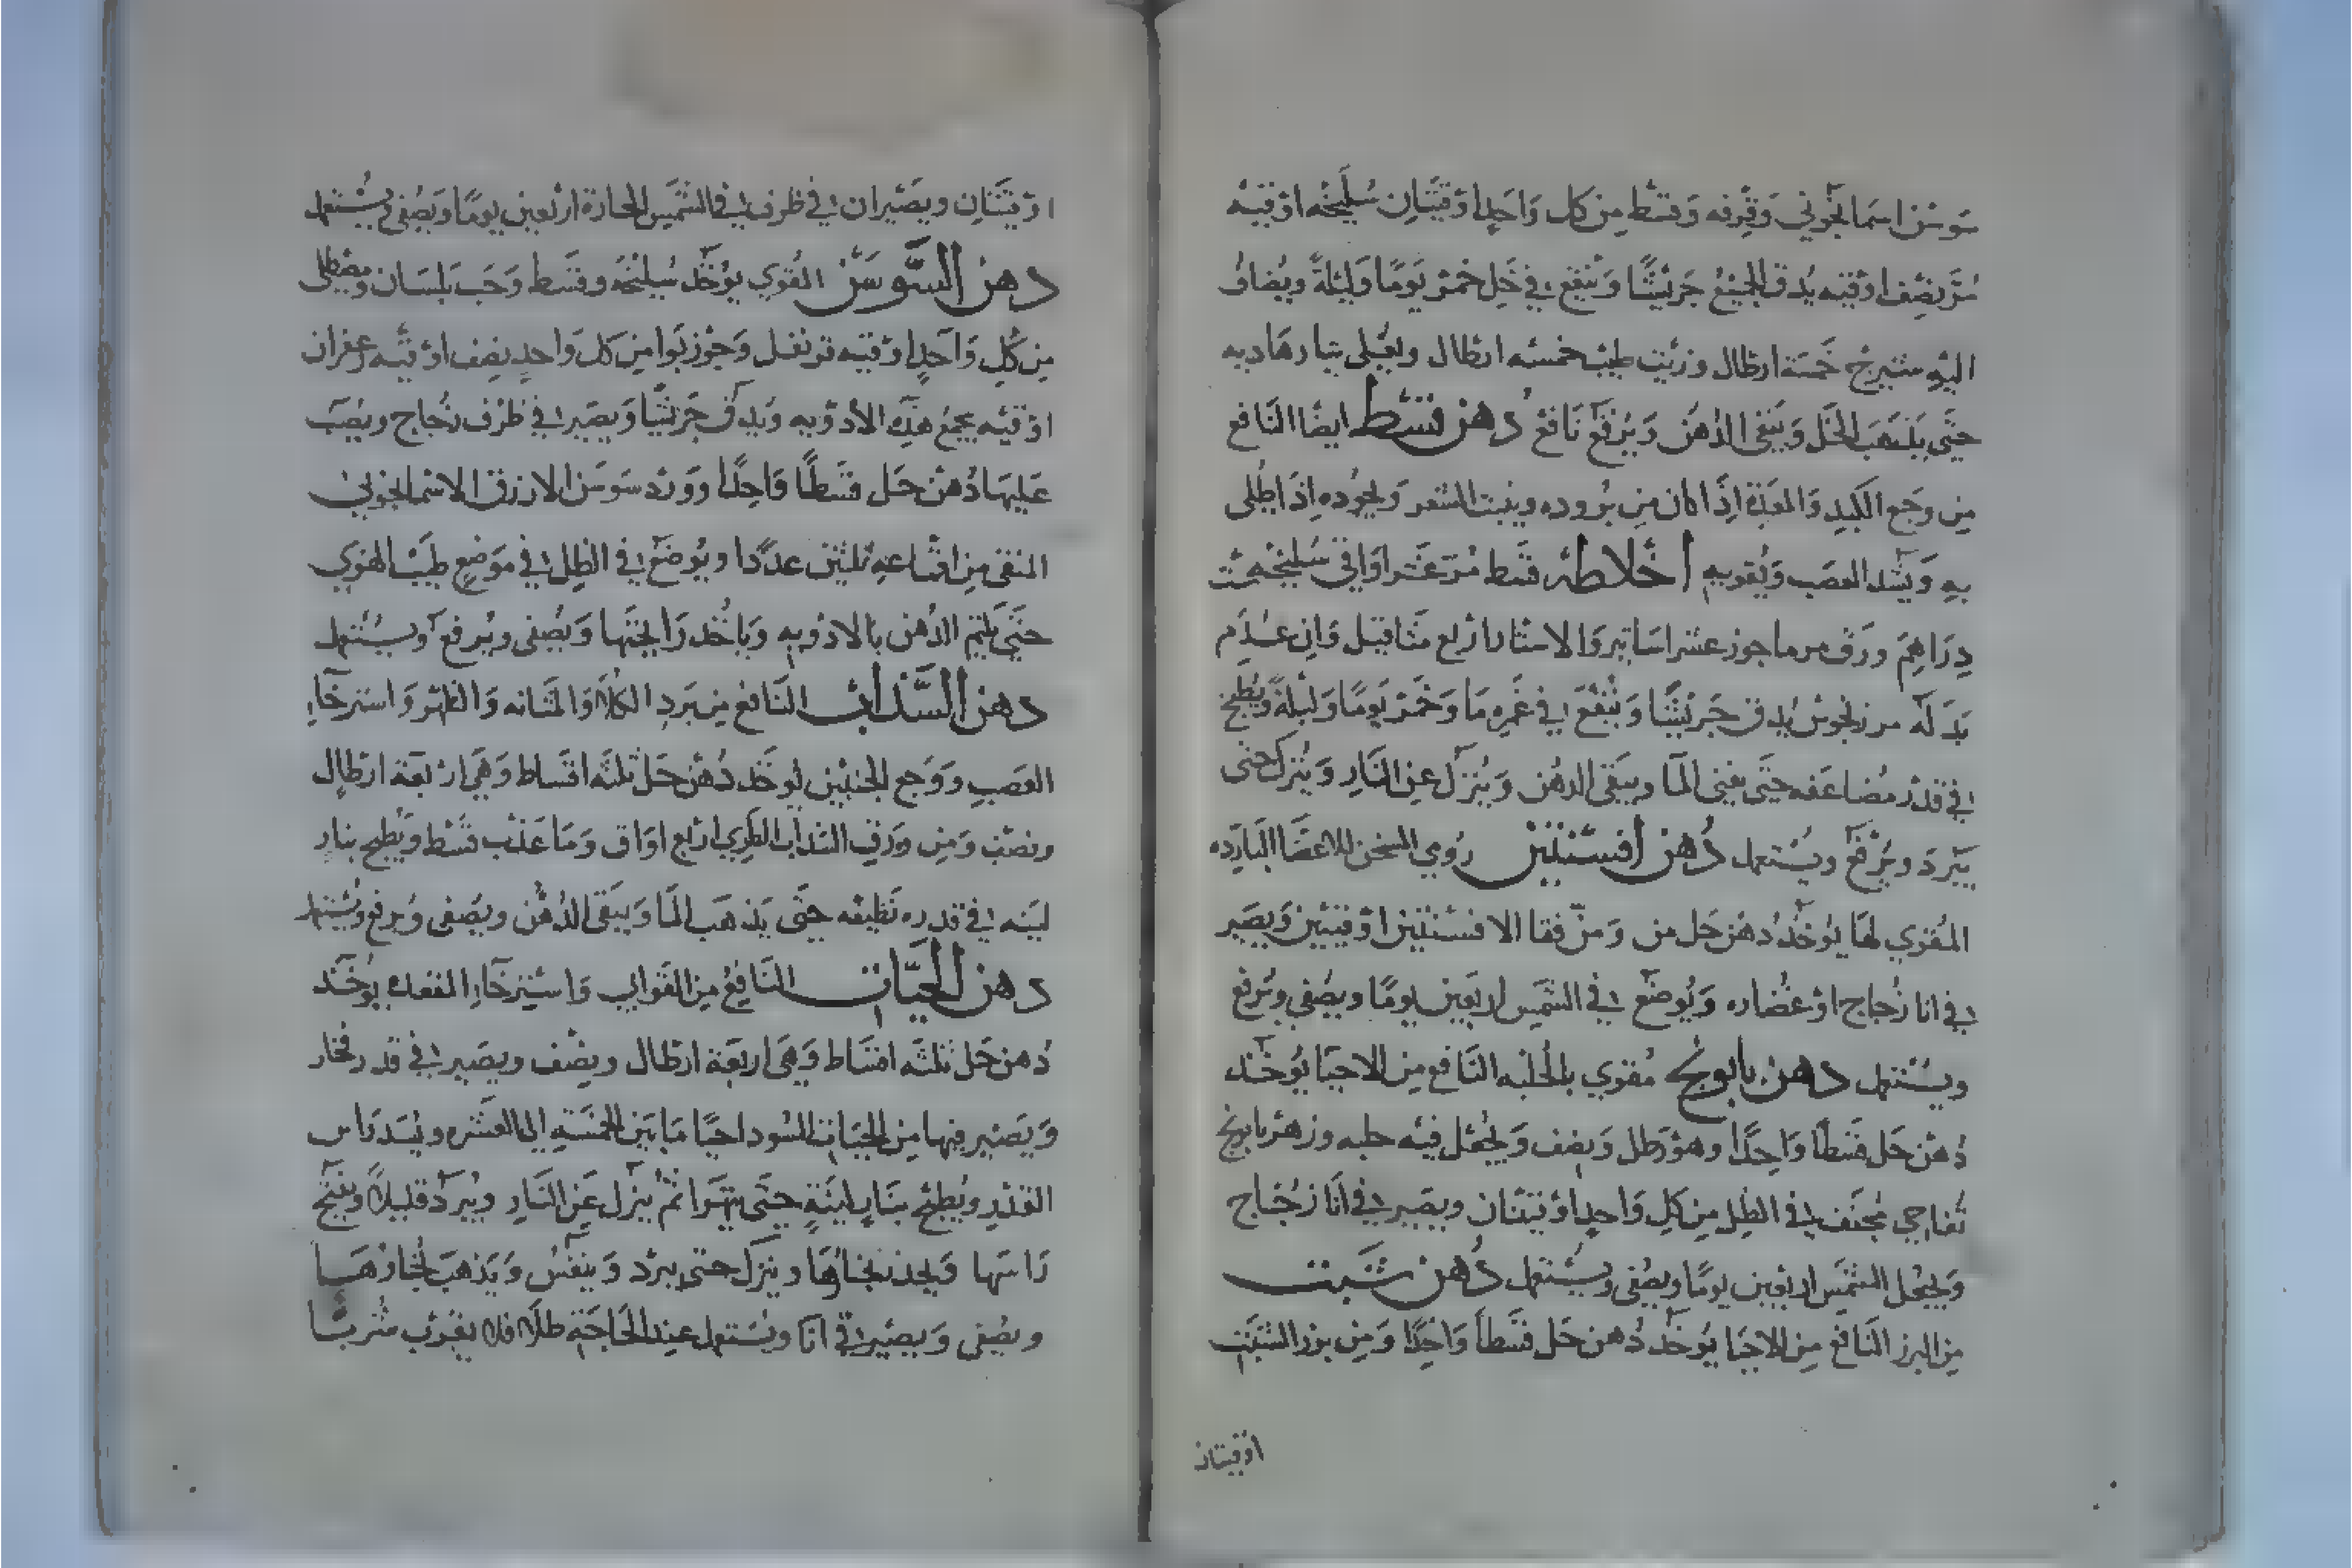 سوسن اسمانجوني وقرفه وقسط من كل واحد اوقيتان سليخه اوقيه
مر نصف اوقيه يدق الجميع جريشا وينقع في خل خمر يوما وليلة ويضاف
اليه شيرج خمسة ارطال وزيت طيب خمسه ارطال ويغلى بنار هاديه
حتى يذهب الخل ويبقى الدهن ويرفع نافع دهن قسط ايضا النافع
من وجع الكبد والمعدة اذا كان من بروده وينبت الشعر ويجوده اذا طلى
به ويشد العصب ويقويه اخلاطه قسط مر عشر اواقي سليخه ست
دراهم ورق مرماحوز عشر اساتير والاستار اربع مثاقيل وان عدم
بدله مرزنجوش يدق جريشا وينقع في غمره ما وخمر يوما وليلة ويطبخ
في قدر مضاعفه حتى يفنى الما ويبقى الدهن وينزل عن النار ويترك حتى
يبرد ويرفع ويستعمل دهن افسنتين رومي المسخن للاعضا البارده
المقوي لها يوخذ دهن حل من ومن فقا الافسنتين اوقيتين ويصير
في انا زجاج او غضاره ويوضع في الشمس اربعين يوما ويصفى ويرفع
ويستعمل دهن بابونج مقوي بالحلبه النافع من الاعيا يوخذ
دهن حل قسطا واحدا وهو رطل ونصف ويجعل فيه حلبه وزهر بابونج
تفاحي مجفف في الظل من كل واحد اوقيتان ويصير في انا زجاج
ويجعل الشمس اربعين يوما ويصفى ويستعمل دهن شبت
من البرز النافع من الاعيا يوخذ دهن حل قسطا واحدا ومن بزر الشبت
اوقيتان
اوقيتان ويصيران في ظرف في الشمس الحارة اربعين يوما ويصفى ويستعمل
دهن السوسن القوي يوخذ سليخة وقسط وحب بلسان ومصطكى
من كل واحد اوقيه قرنفل وجوزبوا من كل واحد نصف اوقيه زعفران
اوقيه يجمع هذه الادويه ويدق جريشا ويصير في ظرف زجاج ويصب
عليها دهن حل قسطا واحدا وورد سوسن الازرق الاسمانجوني
المنقى من اقماعه ثلثين عددا ويوضع في الظل في موضع طيب الهوى
حتى يلتم الدهن بالادويه وياخذ رايحتها ويصفى ويرفع ويستعمل
دهن السذاب النافع من برد الكلا والمثانه والظهر واسترخاء
العصب ووجع الجنبين يوخذ دهن حل ثلثه اقساط وهي اربعة ارطال
ونصف ومن ورق السذاب الطري اربع اواق وما عذب قسط ويطبخ بنار
لينه في قدره نظيفه حتى يذهب الما ويبقى الدهن ويصفى ويرفع ويستعمل
دهن الحيات النافع من القوابي واسترخاء المقعده يوخذ
دهن حل ثلثه اقساط وهي اربعة ارطال ونصف ويصير في قدر فخار
ويصير فيها من الحيات السود احيا ما بين الخمسة الى العشره ويسد راس
القدر ويطبخ بنار لينة حتى تتهرا ثم ينزل عن النار ويبرد قليلا ويفتح
راسها ويحذر بخارها ويترك حتى يبرد ويتنفس ويذهب بخارها
ويصفى ويصير في انا ويستعمل عند الحاجة طلا فلا يقرب شربا